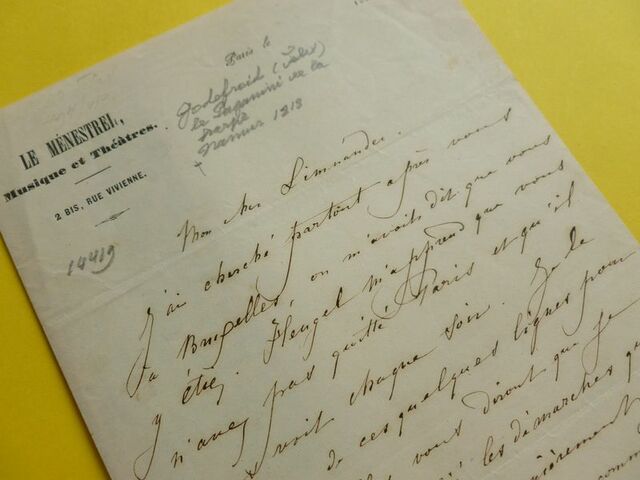 Paris le
Godefroid (Félix)
le Paganini de la
harpe
Namur 1818
LE MÉNESTREL,
Musique et Théâtres.
2 BIS, RUE VIVIENNE.
14419
Mon cher Limnander.
J'ai cherché partout après vous
à Bruxelles, on m'avait dit que vous
y étiez. Heugel m'apprend que vous
n'avez pas quitté Paris et qu'il
vous voit chaque soir. Je le
de ces quelques lignes pour
vous diront que je
les démarches